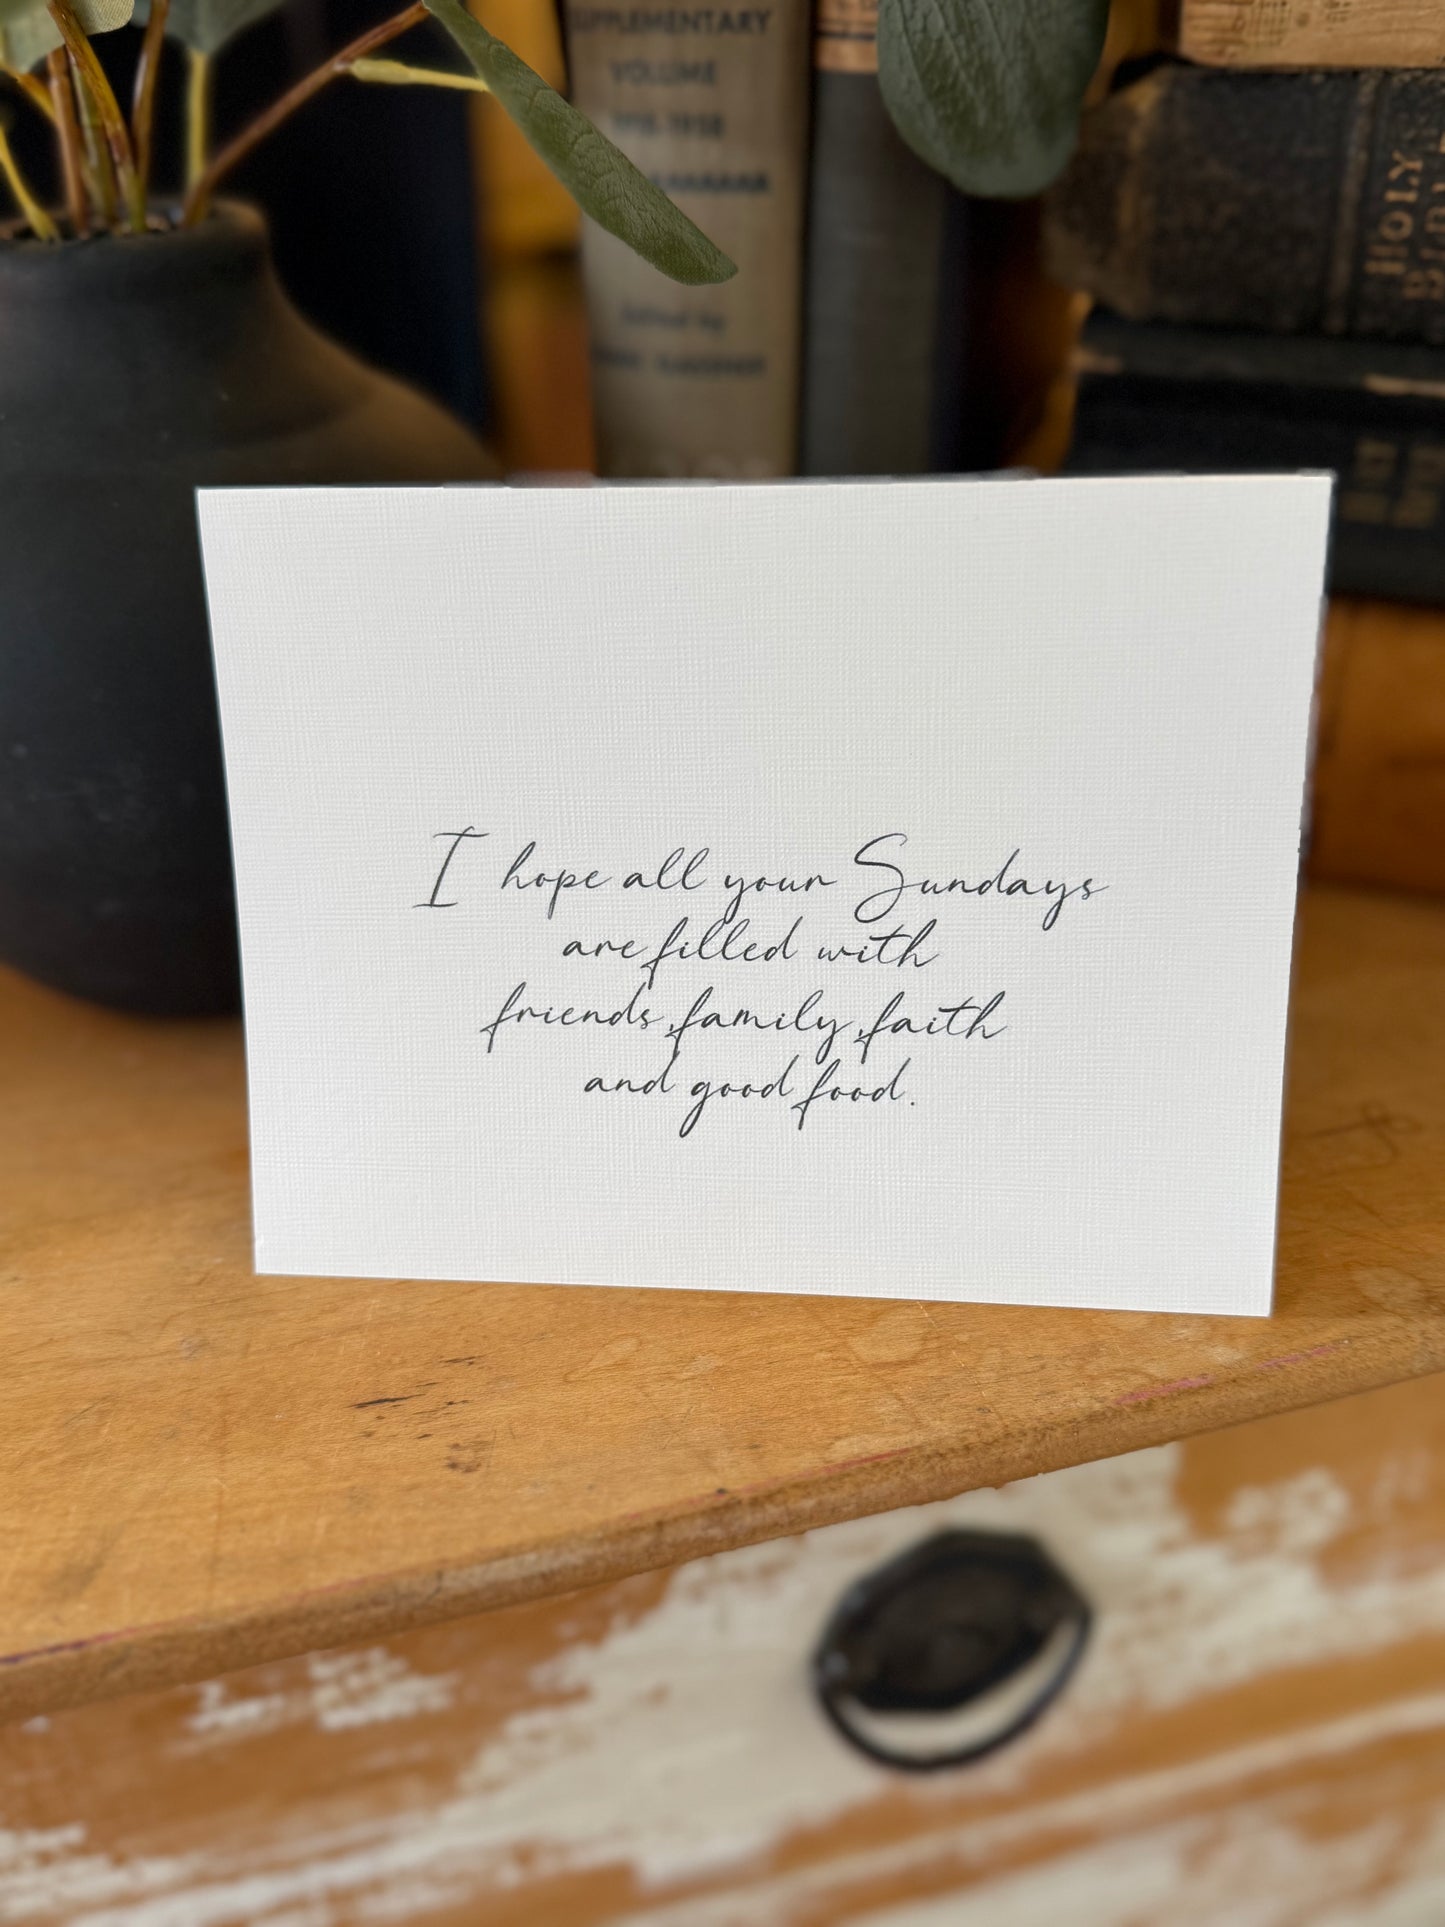 SUPPLEMENTARY
VOLUME
Edited by
HOLY
BIBLE
I hope all your Sundays
are filled with
friends, family, faith
and good food.